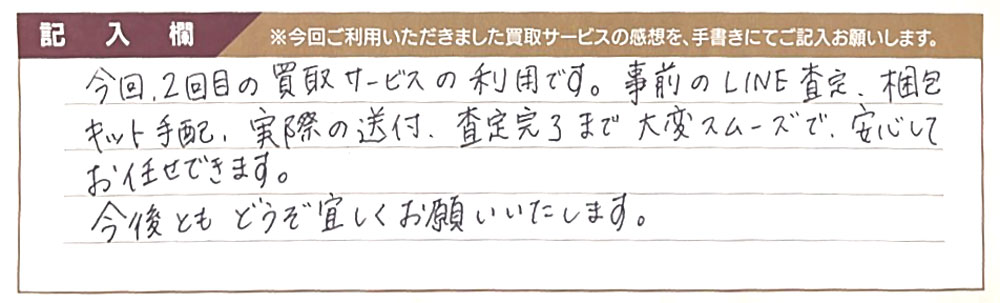 記入欄
※今回ご利用いただきました買取サービスの感想を、手書きにてご記入お願いします。
今回、2回目の買取サービスの利用です。事前のLINE査定、梱包
キット手配、実際の送付、査定完了まで大変スムーズで、安心して
お任せできます。
今後ともどうぞ宜しくお願いいたします。